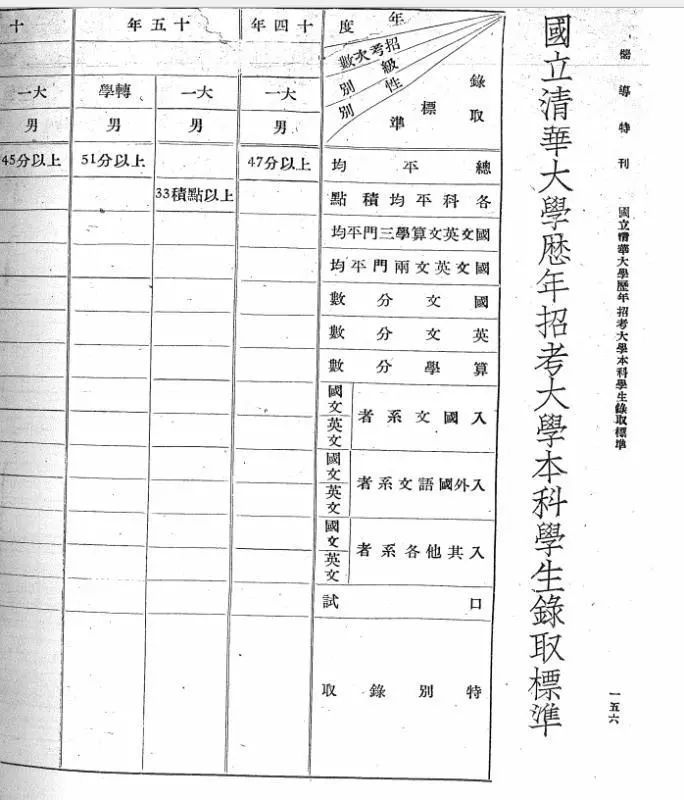 導特刊 國立清華大學歷年招考大學本科學生錄取標準 一五六
國立清華大學歷年招考大學本科學生錄取標準
年度
招考次數
級別
性別
錄取標準
總平均
各科平均積點
國文英文算學三門平均
國文英文兩門平均
國文分數
英文分數
算學分數
入國文系者
國文
英文
入外國語文系者
國文
英文
入其他各系者
國文
英文
口試
特別錄取
十四年
大一
男
47分以上
十五年
大一
男
33積點以上
轉學
男
51分以上
十
大一
男
45分以上